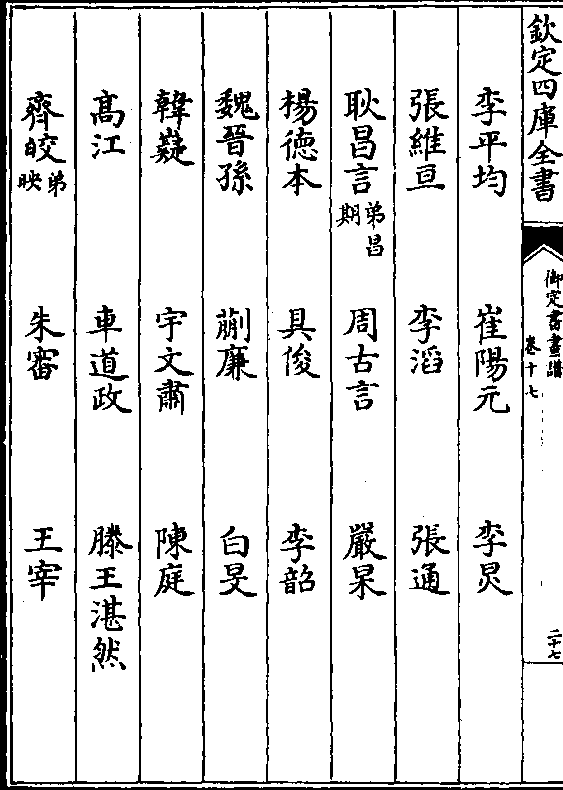 欽定四庫全書
御定書畫譜
卷十七
二十七
李平均 崔陽元 李炅
張維亘 李滔 張通
耿昌言弟昌期 周古言 嚴杲
楊德本 具俊 李韶
魏晉孫 蒯廉 白旻
韓嶷 宇文肅 陳庭
髙江 車道政 滕王湛然
齊皎弟映 朱審 王宰